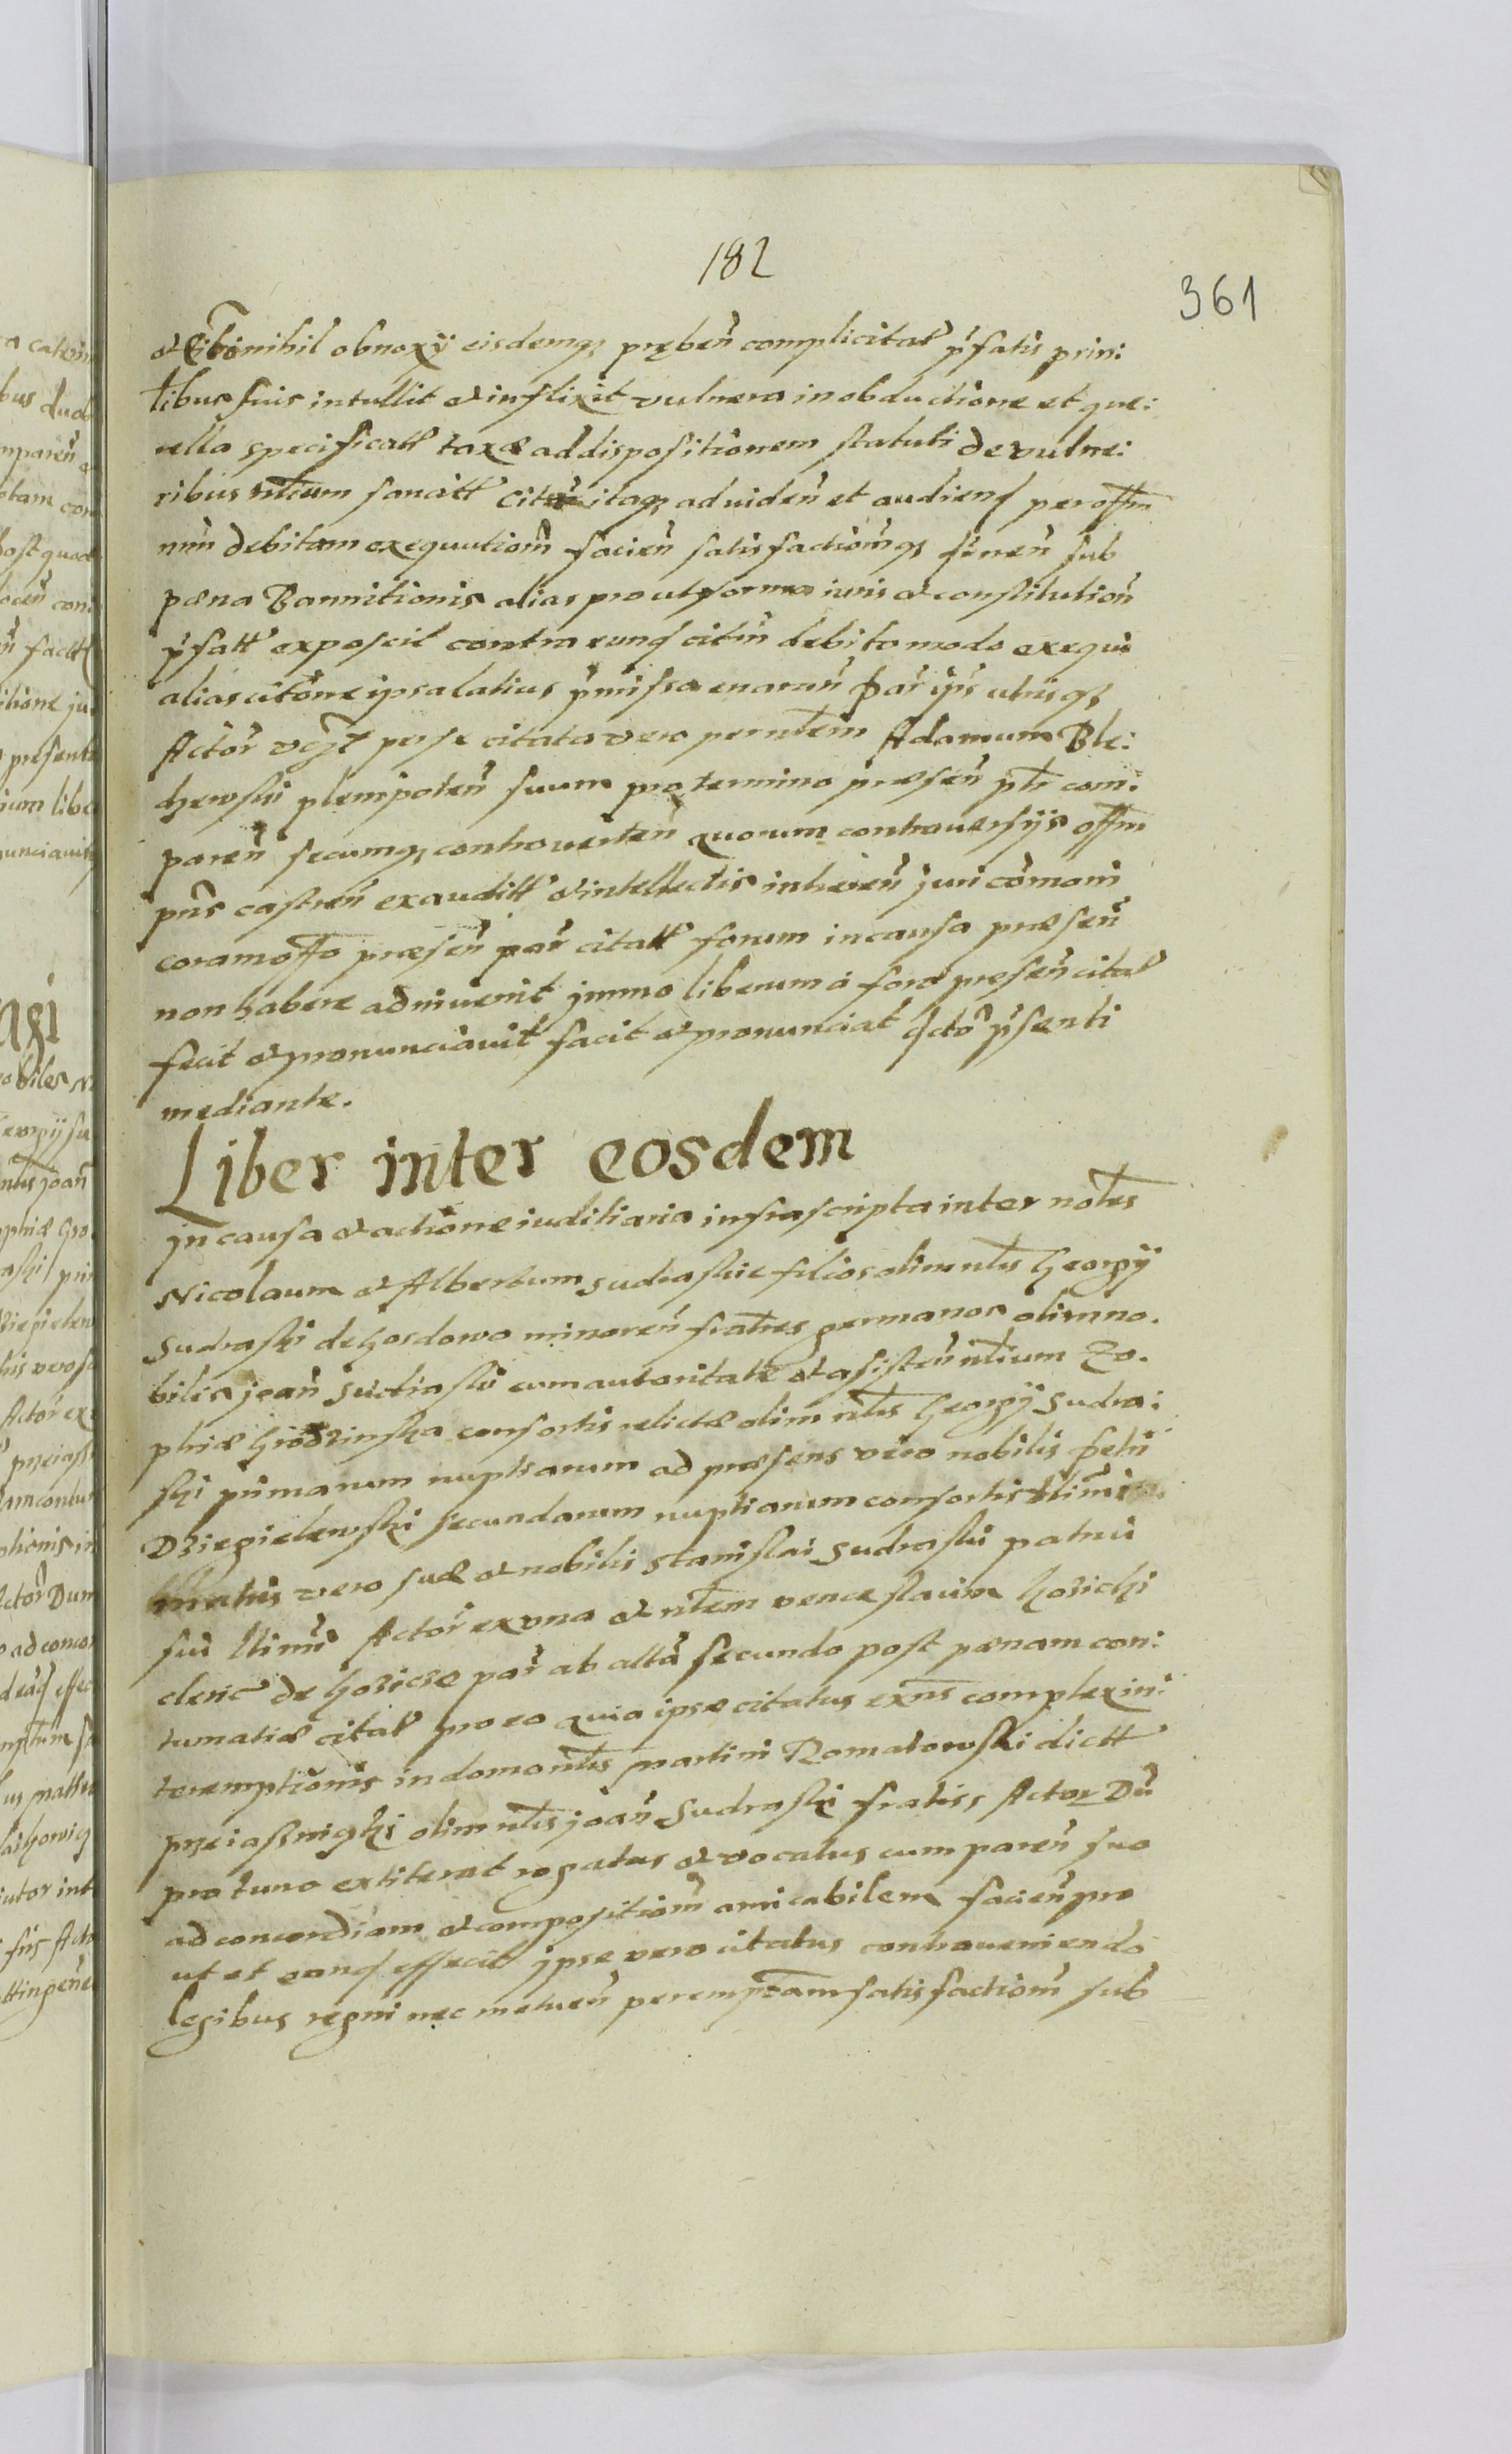 182
361
et sibi nihil obnoxÿ eisdemq pręben complicitat pfatis prin:
tibus suis intullit et inflixit vulnera in obductione et que:
rella specificatt taxæ ad dispositionem statuti de vulne:
ribus nlium sancitt Citat itaq ad viden et audiend per offm
nrm debitam exequutiom facien satisfactiomq fieren sub
pæna Bannitionis alias prout forma iuris et constitution
pfatt exposcit contra eund citm debito modo exequi
alias citõne ipsa latius pmissa enarran par ips utrisq
Actor vez per se citata vero per nlem Adamum Ble:
chewski plenipoten suum pro termino præsen plr com:
paren secumq controverten quorum controversÿs offm
pns castren exauditt et intellectis inheren juri comoni
coram offo præsen par citatt forum in causa præsen
non habere adinvenit jmmo liberum a foro presen citat
fecit et pronunciavit facit et pronunciat dcto psenti
mediante.
Liber inter eosdem
jn causa et actione iuditiaria infrascripta inter nobles
Nicolaum et Albertum sudraskie filios olim nlis Georgÿ
Sudraski de hordowo minoren fratres germanos olim no.
bilis joan Sudraski cum autoritate et asisten nlium Zo.
phiæ Grodzinska consortis relictæ olim nlis Georgÿ Sudra:
ski primarum nuptiarum ad præsens vero nobilis petri
Dziegielewski secundarum nuptiarum consortis
matris vero suæ et nobilis Stanislai Sudraski patrui
sui ltimi Actor ex vna et nlem venceslaum hozichi
cleric de hozicze par ab altã secundo post pænam con:
tumatiæ citat pro eo quia ipse citatus exns complex in:
teremptionis in domo nlis martini Romatowski dictt
przeiassnighi olim nlis joan Sudraski fratris Actor Dũ
pro tunc extiterat rogatus et vocatus cum paren suo
ad concordiam et compositiom amicabilem facien pro
ut et eand effecit jpse vero citatus contraveniendo
legibus regni nec metuen peremptam satisfactiom sub